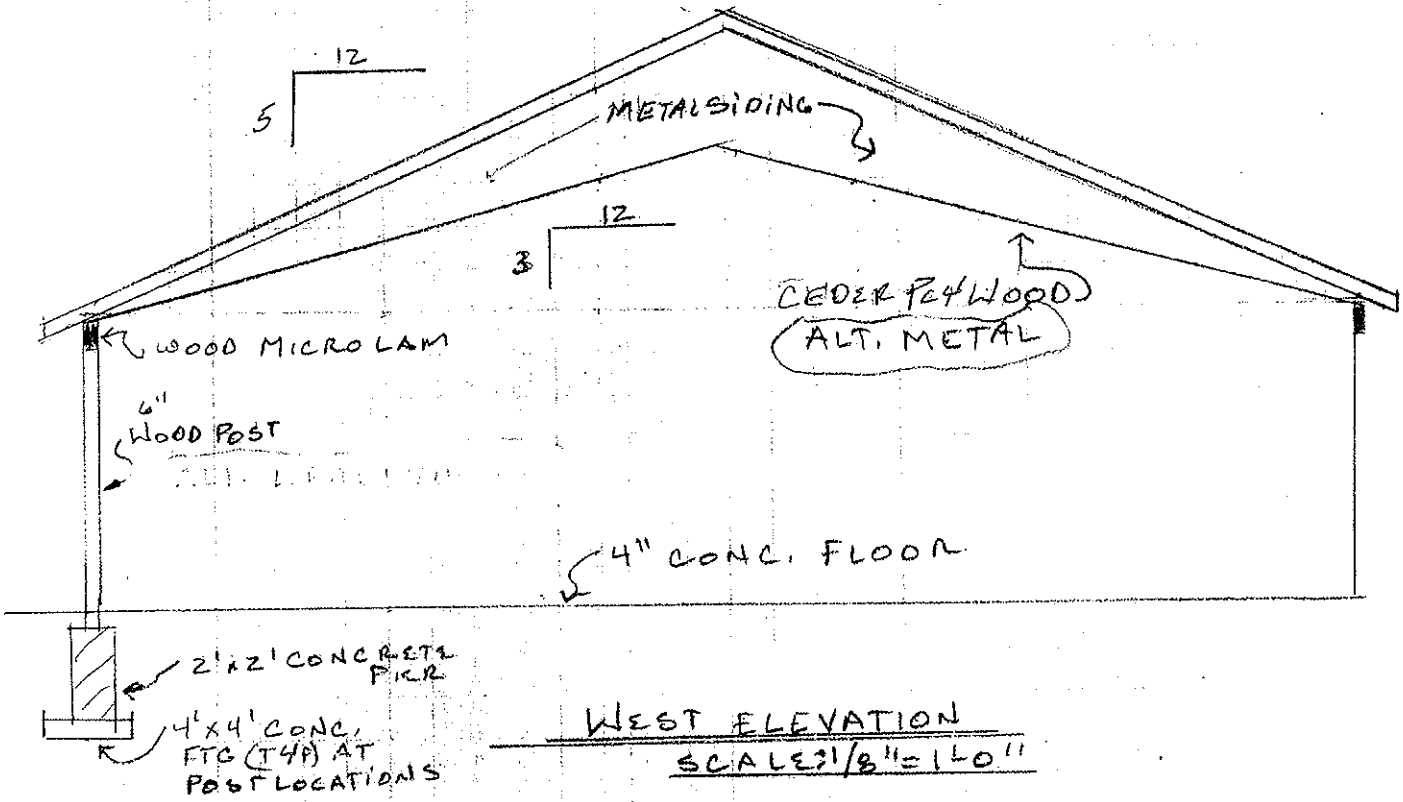 12
5
METAL SIDING
12
3
CEDER PLYWOOD
ALT. METAL
WOOD MICROLAM
6"
WOOD POST
4" CONC. FLOOR
2'x2' CONCRETE
PIER
4'x4' CONC.
FTG (TYP) AT
POST LOCATIONS
WEST ELEVATION
SCALE: 1/8"=1'-0"